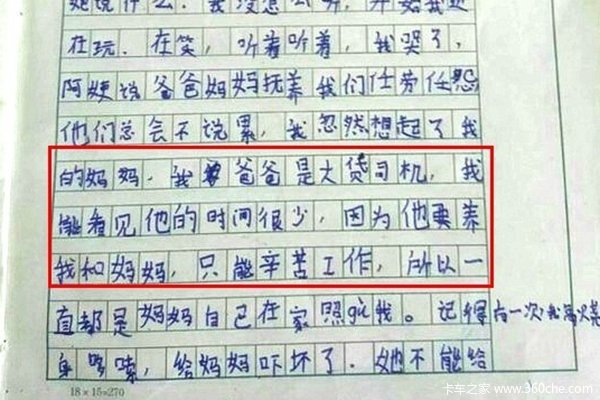 她说什么．我没怎么听，开始我还
在玩．在笑，听着听着，我哭了，
阿姨说爸爸妈妈抚养我们任劳任怨
他们总会不说累，我忽然想起了我
的妈妈．我爸爸是大货司机，我
能看见他的时间很少，因为他要养
我和妈妈，只能辛苦工作，所以一
直都是妈妈自己在家照gu我。记得有一次，我
身哆嗦，给妈妈吓坏了．她不能给
18×15=270
卡车之家 www.360che.com